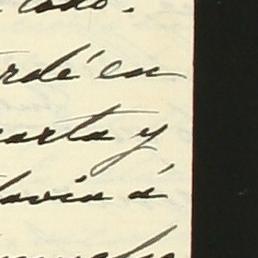 todo.
rdé en
carta y
davia á